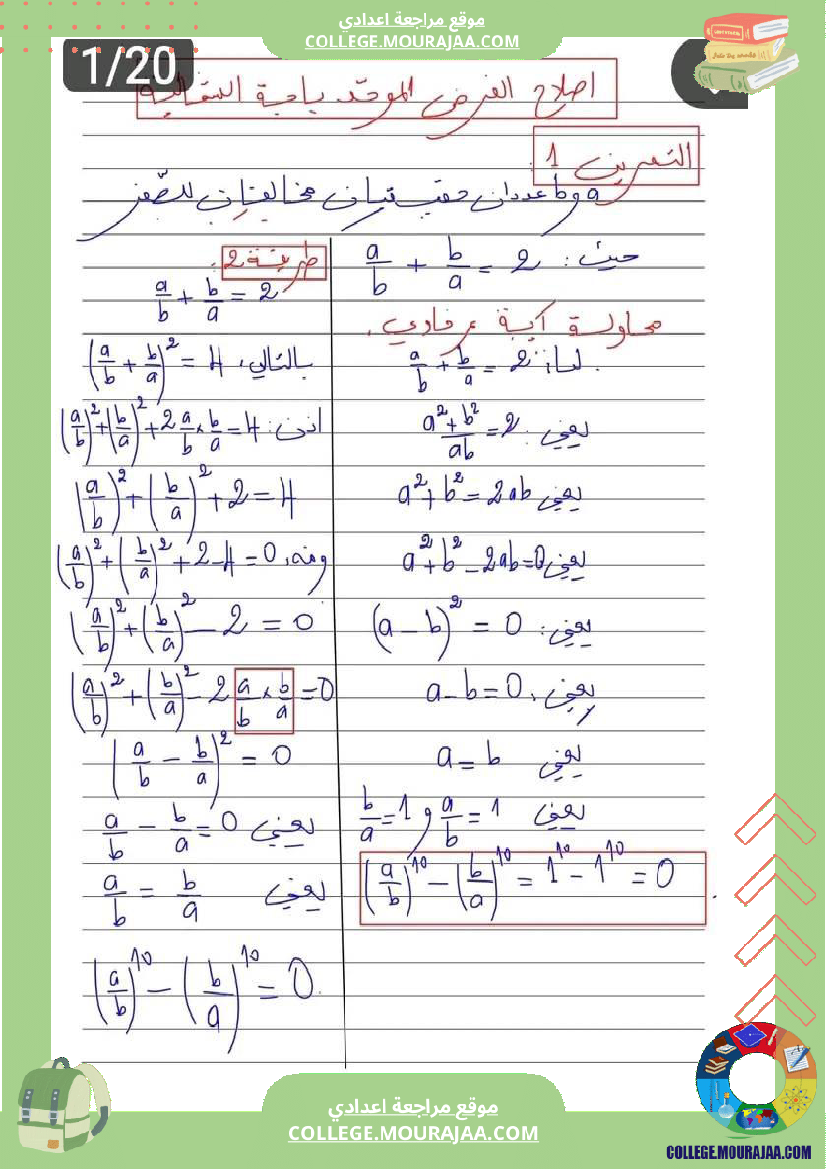 موقع مراجعة اعدادي
COLLEGE.MOURAJAA.COM
1/20
اصلاح الفرض الموحد باجية الشمالية
التمرين 1
a و b عددان حقيقيان مخالفان للصّفر
حيث: a/b + b/a = 2
محاولة آية عرفاوي.
لنا: a/b + b/a = 2
يعني: (a²+b²)/ab = 2
يعني a²+b² = 2ab
يعني a²+b²-2ab=0
يعني: (a-b)² = 0
يعني، a-b=0
يعني a=b
يعني a/b = 1 و b/a = 1
(a/b)¹⁰ - (b/a)¹⁰ = 1¹⁰ - 1¹⁰ = 0
طريقة 2:
a/b + b/a = 2
بالتالي، (a/b + b/a)² = 4
اذن: (a/b)² + (b/a)² + 2 a/b × b/a = 4
(a/b)² + (b/a)² + 2 = 4
ومنه، (a/b)² + (b/a)² + 2-4 = 0
(a/b)² + (b/a)² - 2 = 0
(a/b)² + (b/a)² - 2 a/b × b/a = 0
(a/b - b/a)² = 0
يعني a/b - b/a = 0
يعني a/b = b/a
(a/b)¹⁰ - (b/a)¹⁰ = 0.
موقع مراجعة اعدادي
COLLEGE.MOURAJAA.COM
COLLEGE.MOURAJAA.COM